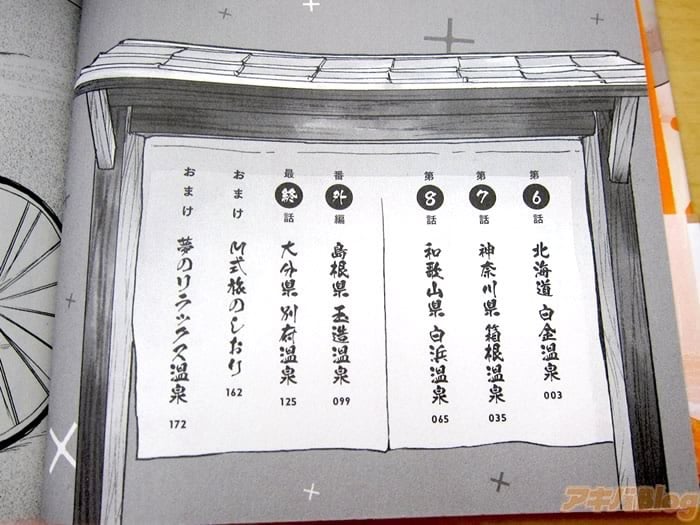 第6話
北海道 白金温泉
003
第7話
神奈川県 箱根温泉
035
第8話
和歌山県 白浜温泉
065
番外編
島根県 玉造温泉
099
最終話
大分県 別府温泉
125
おまけ
旅のしおり
162
おまけ
夢のリラックス温泉
172
アキバBlog